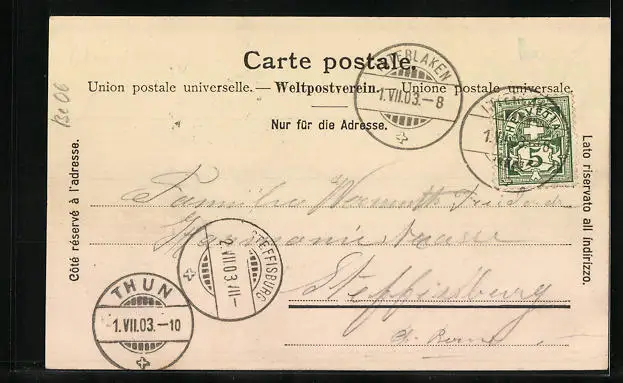 Carte postale.
Union postale universelle. — Weltpostverein. — Unione postale universale.
Nur für die Adresse.
Côté réservé à l'adresse.
Lato riservato all indirizzo.
Be 06
INTERLAKEN
1.VII.03.–8
HELVETIA
5
Familie
Steffisburg
STEFFISBURG
2.VII.03.VII–
THUN
1.VII.03.–10